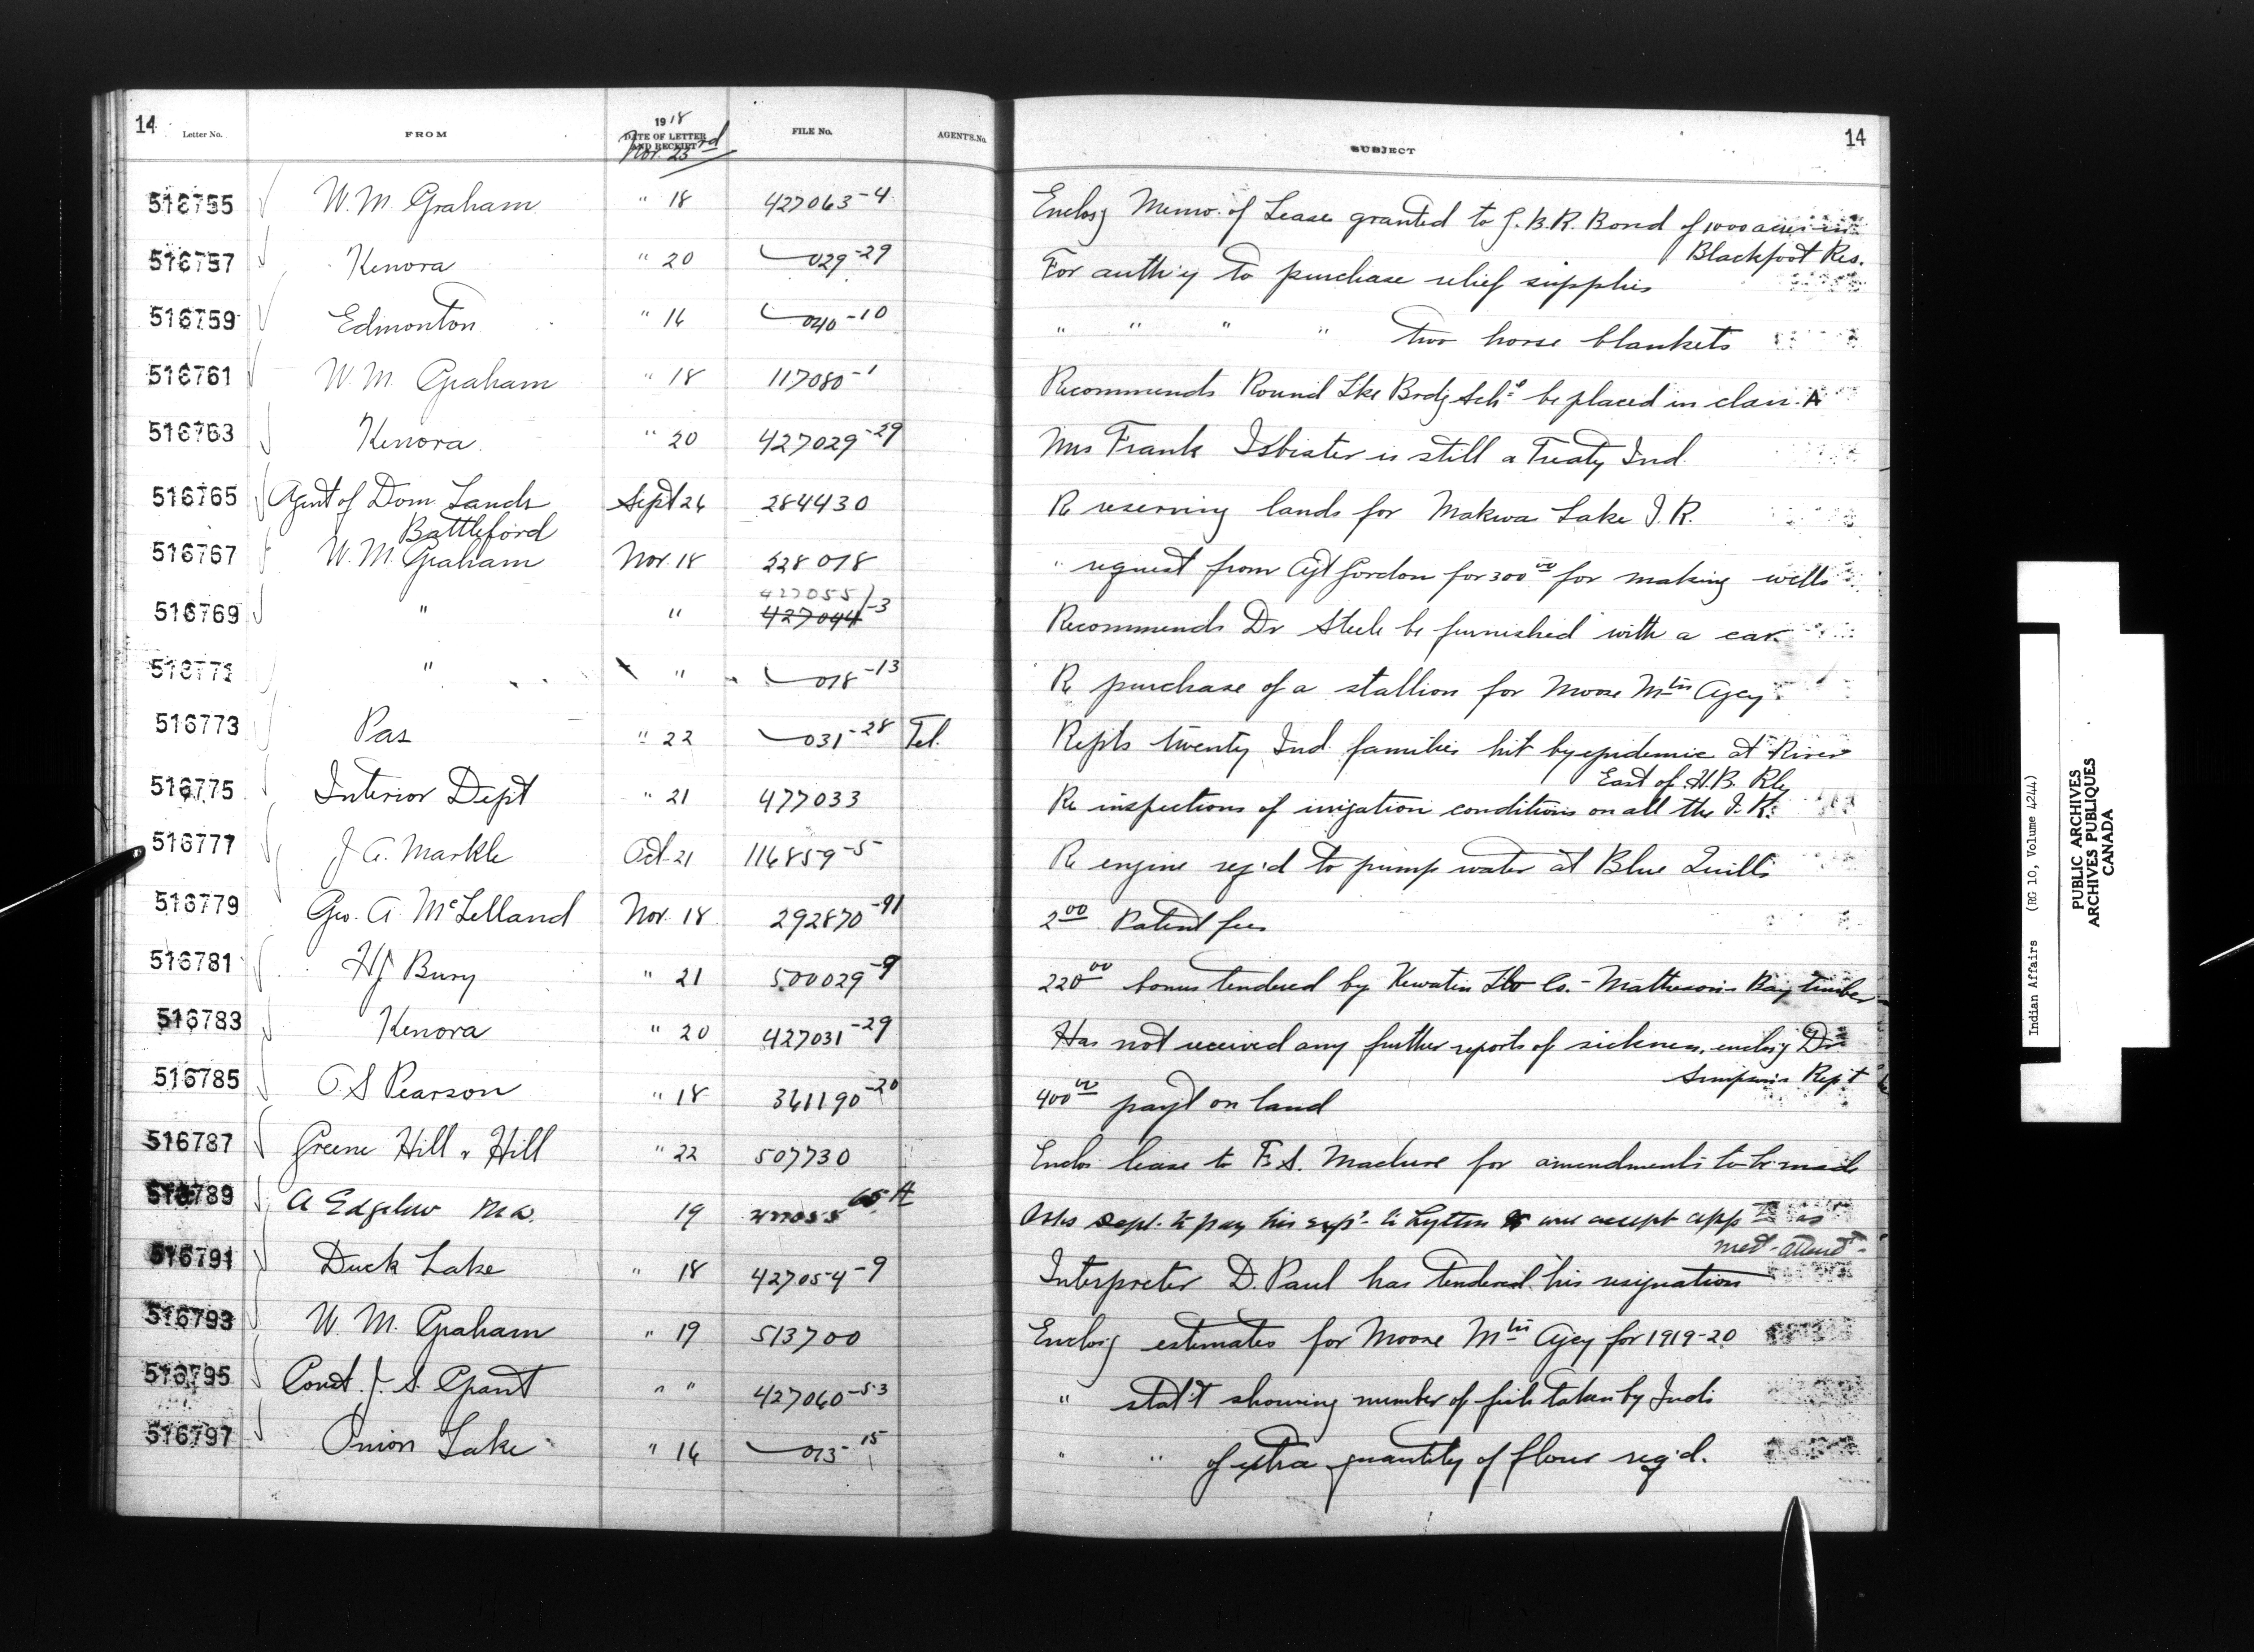 14
Letter No. FROM 1918 DATE OF LETTER AND RECEIPT FILE No. AGENT'S No. SUBJECT 14
Nov. 23rd
516755 W. M. Graham " 18 427063-4 Enclosg Memo. of Lease granted to J. B. R. Bond of 1000 acres in
Blackfoot Res.
516757 Kenora " 20 029-29 For auth'y to purchase relief supplies
516759 Edmonton " 16 040-10 " " " " two horse blankets
516761 W. M. Graham " 18 117080-1 Recommends Round Lke Brdg Schl be placed in class A
516763 Kenora " 20 427029-29 Mrs Frank Isbister is still a Treaty Ind.
516765 Agent of Dom Lands Sept 26 284430 Re reserving lands for Makwa Lake I. R.
Battleford
516767 W. M. Graham Nov. 18 228078 " request from Agt Gordon for 300 00 for making wells
427055
516769 " " 427044-3 Recommends Dr Steele be furnished with a car
516771 " " 018-13 Re purchase of a stallion for Moose Mtn Agcy.
516773 Pas " 22 031-28 Tel. Repts twenty Ind. families hit by epidemic at River
East of H. B. Rly
516775 Interior Dept " 21 477033 Re inspections of irrigation conditions on all the I. R.
516777 J. A. Markle Oct. 21 116859-5 Re engine req'd to pump water at Blue Quills
516779 Geo. A. McLelland Nov. 18 292870-91 2 00 Patent fee
516781 H J Bury " 21 500029-9 220 00 bonus tendered by Kewatin Lbr Co. - Matheson's Bay timber
516783 Kenora " 20 427031-29 Has not received any further reports of sickness, enclosg Dr
Simpson's Rep't
516785 O S Pearson " 18 361190-20 400 00 payt on land
516787 Greene Hill & Hill " 22 507730 Enclos lease to F. S. Maclure for amendments to be made
516789 A Edgelow M.D. 19 65 A Asks Dept. to pay his exps. to Lytton will accept appt as
med - attendt
516791 Duck Lake " 18 427054-9 Interpreter D. Paul has tendered his resignation
516793 W. M. Graham " 19 513700 Enclosg estimates for Moose Mtn Agcy for 1919-20
516795 Const. J. S. Grant " " 427060-53 " stat't showing number of fish taken by Inds
516797 Onion Lake " 16 -15 " " of extra quantity of flour req'd.
Indian Affairs (RG 10, Volume 4244)
PUBLIC ARCHIVES
ARCHIVES PUBLIQUES
CANADA